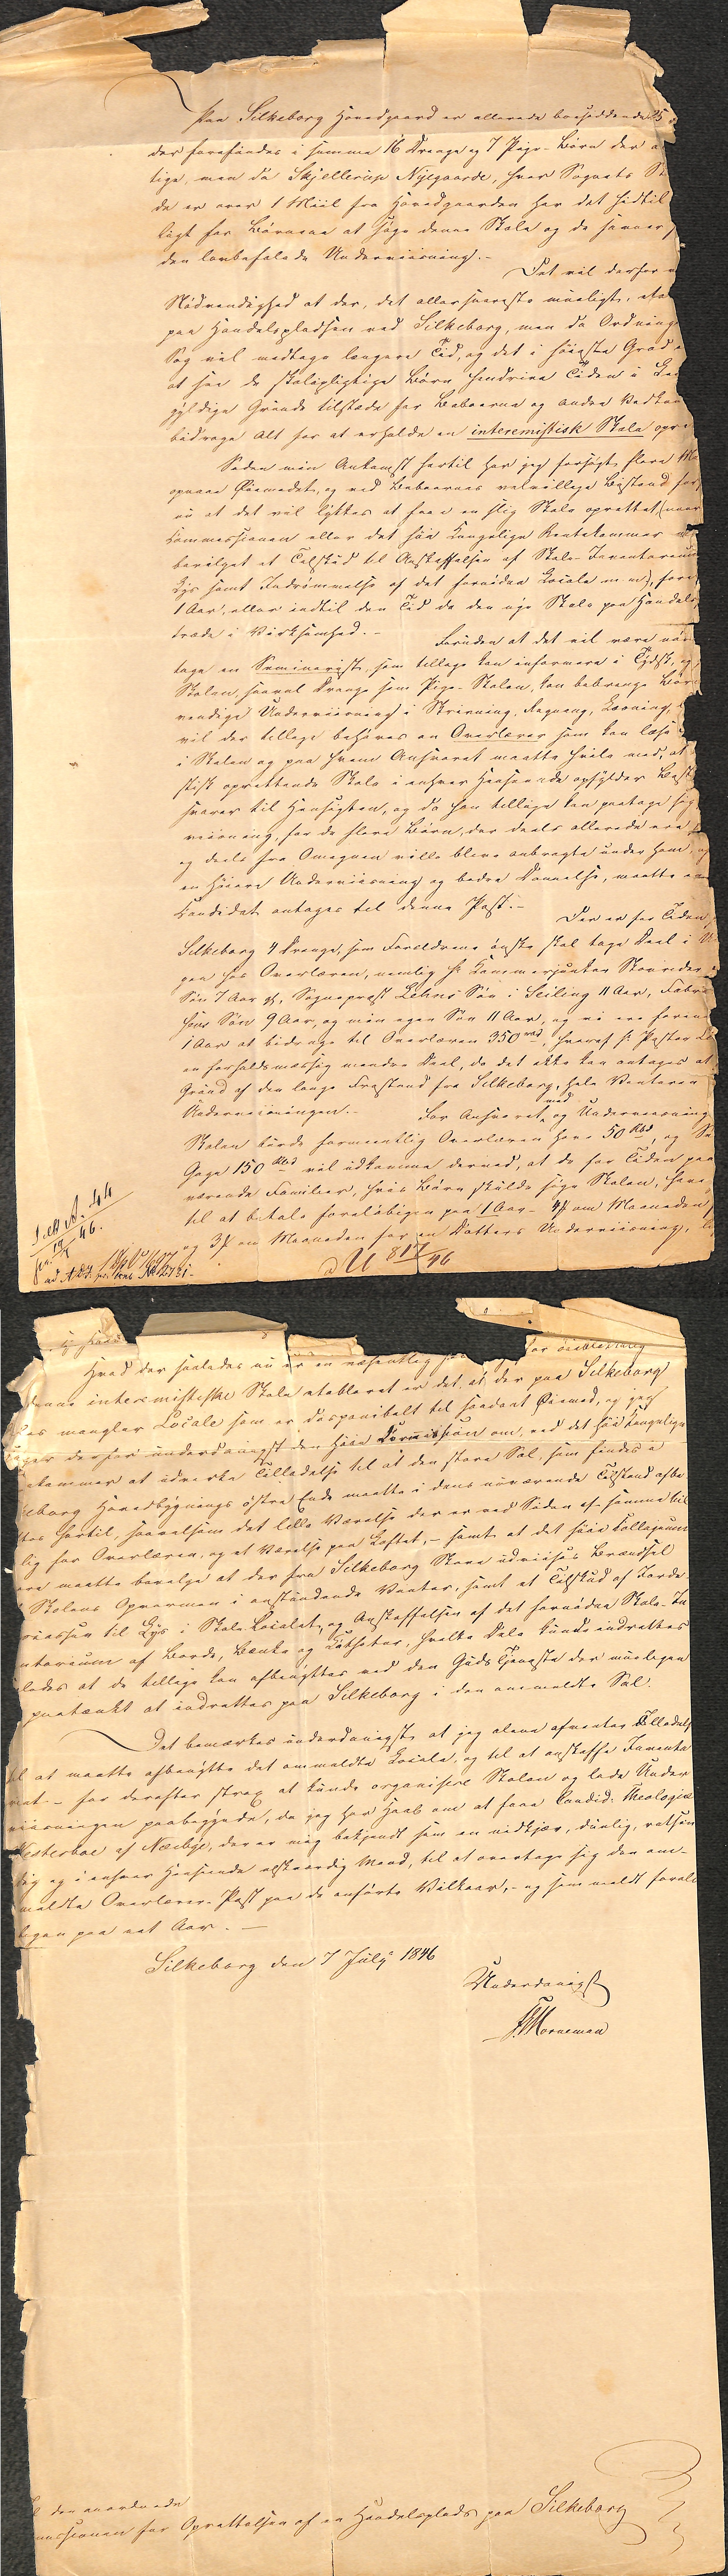 Paa Silkeborg Hovedgaard er allerede boesiddende 25
der forefindes i samme 16 Drenge og 7 Pige-Børn der
tige, men da Skjellerup Nygaarde, hvor Sognets
de er over 1 Miil fra Hovedgaarden har det hidtil
ligt for Børnene at søge denne Skole og de savner
den lovbefalede Underviisning. -
Det vil derfor
Nødvendighed at der, det allersnareste mueligt,
paa Handelspladsen ved Silkeborg, men da Ordning
Sag vil medtage længere Tid, og det i høieste Grad
at see de skolepligtige Børn hendrive Tiden i
gyldige Grunde tilstæde for Beboerne og andre Vedkom
bidrage Alt for at erholde en interemistisk Skole opre
Siden min Ankomst hertil har jeg forsøgt flere
opnaae Øiemedet, og ved Beboernes velvillige Bistand
nu at det vil lykkes at faae en slig Skole oprettet (naar
Commissionen eller det høie Kongelige Rentekammer
bevilget et Tilskud til Anskaffelsen af Skole-Inventarium
Lys samt Indrømmelse af det fornødne Locale m m),
1 Aar, eller indtil den Tid da den nye Skole paa Handels
træde i Virksomhed. - Foruden at det vil være
tage en Seminarist, som tillige kan informere i Tydsk,
Skolen, saavel Drenge som Pige-Skolen, kan bibringe Børn
vendige Underviisning i Skrivning, Regning, Læsning,
vil der tillige behøves en Overlærer som kan læse
i Skolen og paa hvem Ansvaret maatte hvile med, at
stisk oprettende Skole i enhver Henseende opfylder
svarer til Hensigten, og da han tillige kan paatage sig
viisning, for de flere Børn, der deels allerede ere
og deels fra Omegnen ville blive anbragte under ham,
en høiere Underviisning og bedre Dannelse, maatte en
Candidat antages til denne Post. - Der er for Tiden
Silkeborg 4 Drenge, som Forældrene ønske skal tage Deel i
paa hos Overlæren, nemlig Hr Kammerjunker
Søn 7 Aar gl, Sognepræst Zehns Søn i Seiling 11 Aar, Fabri
Søn 9 Aar, og min egen Søn 11 Aar, og vi ere foren
1 Aar at bidrage til Overlæren 350 Rbd, hvoraf Hr Pastor
en forholdsmæssig mindre Deel, da det ikke kan antages at
Grund af den lange Frastand fra Silkeborg, hele Vinteren
Underviisningen. - For Ansvaret med og Underviisning
Skolen burde formeentlig Overlæren have 50 Rbd, og
Gage 150 Rbd vil udkomme derved, at de for Tiden paa
værende Familier, hvis Børn skulde søge Skolen, have
til at betale foreløbigen paa 1 Aar - 4 om Maaneden
og 3 om Maaneden for en Datters Underviisning,
Hvad der saaledes nu er en væsentlig
denne intermistiske Skole etableret er det, at der paa Silkeborg
mangler Locale som er disponibelt til saadant Øiemed, og jeg
derfor underdanigst den høie Commission om, ved det høie Kongelige
kammer at udvirke Tilladelse til at den store Sal, som findes i
eborg Hovedbygnings østre Ende maatte i dens nuværende Tilstand afbe
hertil, saavelsom det lille Værelse der er ved Siden af samme til
lig for Overlæren, og et Værelse paa Loftet, - samt at det høie Collegium
maatte bevilge at der fra Silkeborg Skove udviises Brændsel
Skolens Opvarmen i anstundende Vinter, samt et Tilskud af
til Lys i Skole Localet, og Anskaffelsen af det fornødne Skole-In
ntarium af Borde, Bænke og
ledes at de tillige kan afbenyttes ved den Guds Tjeneste der muligen
paatænkt at indrettes paa Silkeborg i den anmeldte Sal.
Det bemærkes underdanigst at jeg alene afventer Tilladel
til at maatte afbenytte det ommeldte Locale, og til at anskaffe Inventa
- for derefter strax at kunde organisere Skolen og lade Under
viisningen paabegynde, da jeg har Haab om at faae Candid: Theologiæ
af Nørbye, der er mig bekjendt som en nidkjær, duelig,
og i enhver Henseende elskværdig Mand, til at overtage sig den om
meldte Overlærer-Post paa de anførte Vilkaar, - og som meldt forelø
bigen paa eet Aar. -
Silkeborg den 7 July 1846
Underdanigst
Horneman
den anordnede
missionen for Oprettelsen af en Handelsplads paa Silkeborg